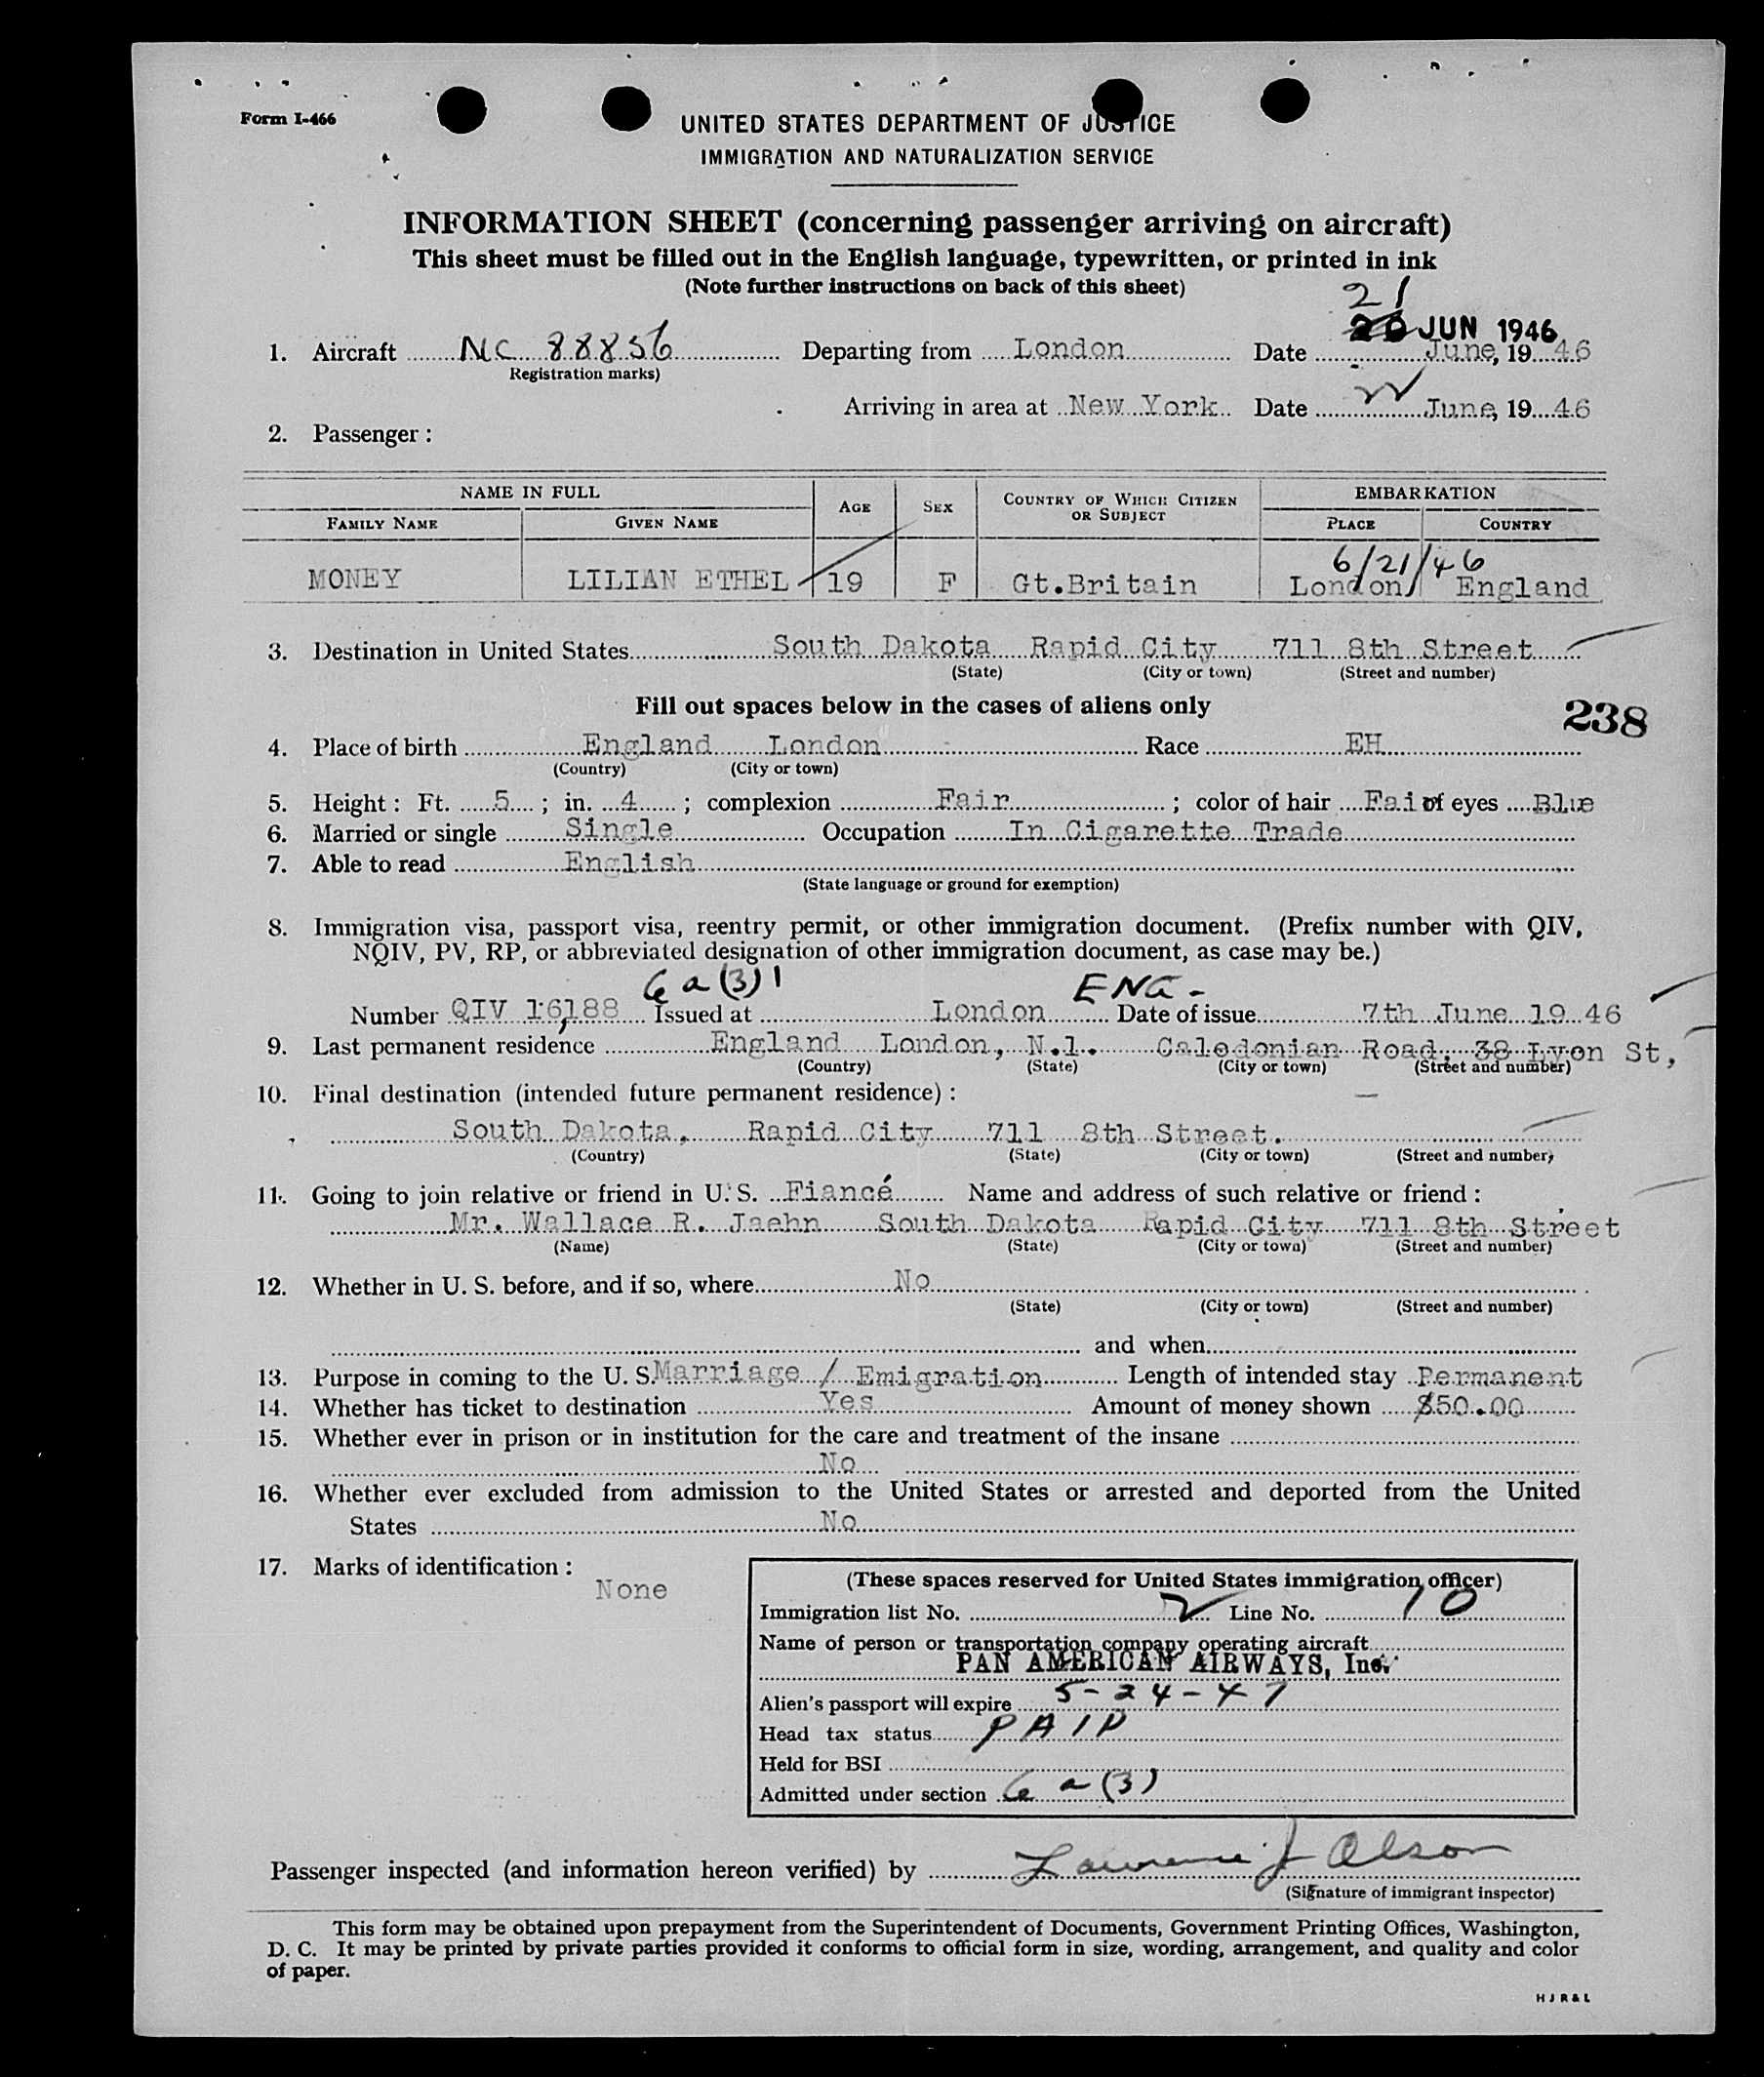 Form I-466
UNITED STATES DEPARTMENT OF JUSTICE
IMMIGRATION AND NATURALIZATION SERVICE
INFORMATION SHEET (concerning passenger arriving on aircraft)
This sheet must be filled out in the English language, typewritten, or printed in ink
(Note further instructions on back of this sheet)
21
20 JUN 1946
1. Aircraft NC 88856 Departing from London Date June, 19 46
Registration marks)
Arriving in area at New York Date 22 June, 19 46
2. Passenger:
NAME IN FULL AGE SEX COUNTRY OF WHICH CITIZEN OR SUBJECT EMBARKATION
FAMILY NAME GIVEN NAME PLACE COUNTRY
6/21/46
MONEY LILIAN ETHEL 19 F Gt.Britain London England
3. Destination in United States South Dakota Rapid City 711 8th Street
(State) (City or town) (Street and number)
Fill out spaces below in the cases of aliens only
238
4. Place of birth England London Race EH
(Country) (City or town)
5. Height: Ft. 5 ; in. 4 ; complexion Fair ; color of hair Fair of eyes Blue
6. Married or single Single Occupation In Cigarette Trade
7. Able to read English
(State language or ground for exemption)
8. Immigration visa, passport visa, reentry permit, or other immigration document. (Prefix number with QIV,
NQIV, PV, RP, or abbreviated designation of other immigration document, as case may be.)
6 a (3) ENG -
Number QIV 16188 Issued at London Date of issue 7th June 19 46
9. Last permanent residence England London, N.1. Caledonian Road, 38 Lyon St,
(Country) (State) (City or town) (Street and number)
10. Final destination (intended future permanent residence):
South Dakota, Rapid City 711 8th Street.
(Country) (State) (City or town) (Street and number)
11. Going to join relative or friend in U. S. Fiancé Name and address of such relative or friend:
Mr. Wallace R. Jaehn South Dakota Rapid City 711 8th Street
(Name) (State) (City or town) (Street and number)
12. Whether in U. S. before, and if so, where No
(State) (City or town) (Street and number)
and when
13. Purpose in coming to the U. S. Marriage / Emigration Length of intended stay Permanent
14. Whether has ticket to destination Yes Amount of money shown $50.00
15. Whether ever in prison or in institution for the care and treatment of the insane
No
16. Whether ever excluded from admission to the United States or arrested and deported from the United
States No
17. Marks of identification:
None
(These spaces reserved for United States immigration officer)
Immigration list No. 2 Line No. 10
Name of person or transportation company operating aircraft
PAN AMERICAN AIRWAYS, Inc.
Alien's passport will expire 5-24-47
Head tax status PAID
Held for BSI
Admitted under section 6 a (3)
Passenger inspected (and information hereon verified) by Lawrence J Olson
(Signature of immigrant inspector)
This form may be obtained upon prepayment from the Superintendent of Documents, Government Printing Offices, Washington,
D. C. It may be printed by private parties provided it conforms to official form in size, wording, arrangement, and quality and color
of paper.
H J R & L